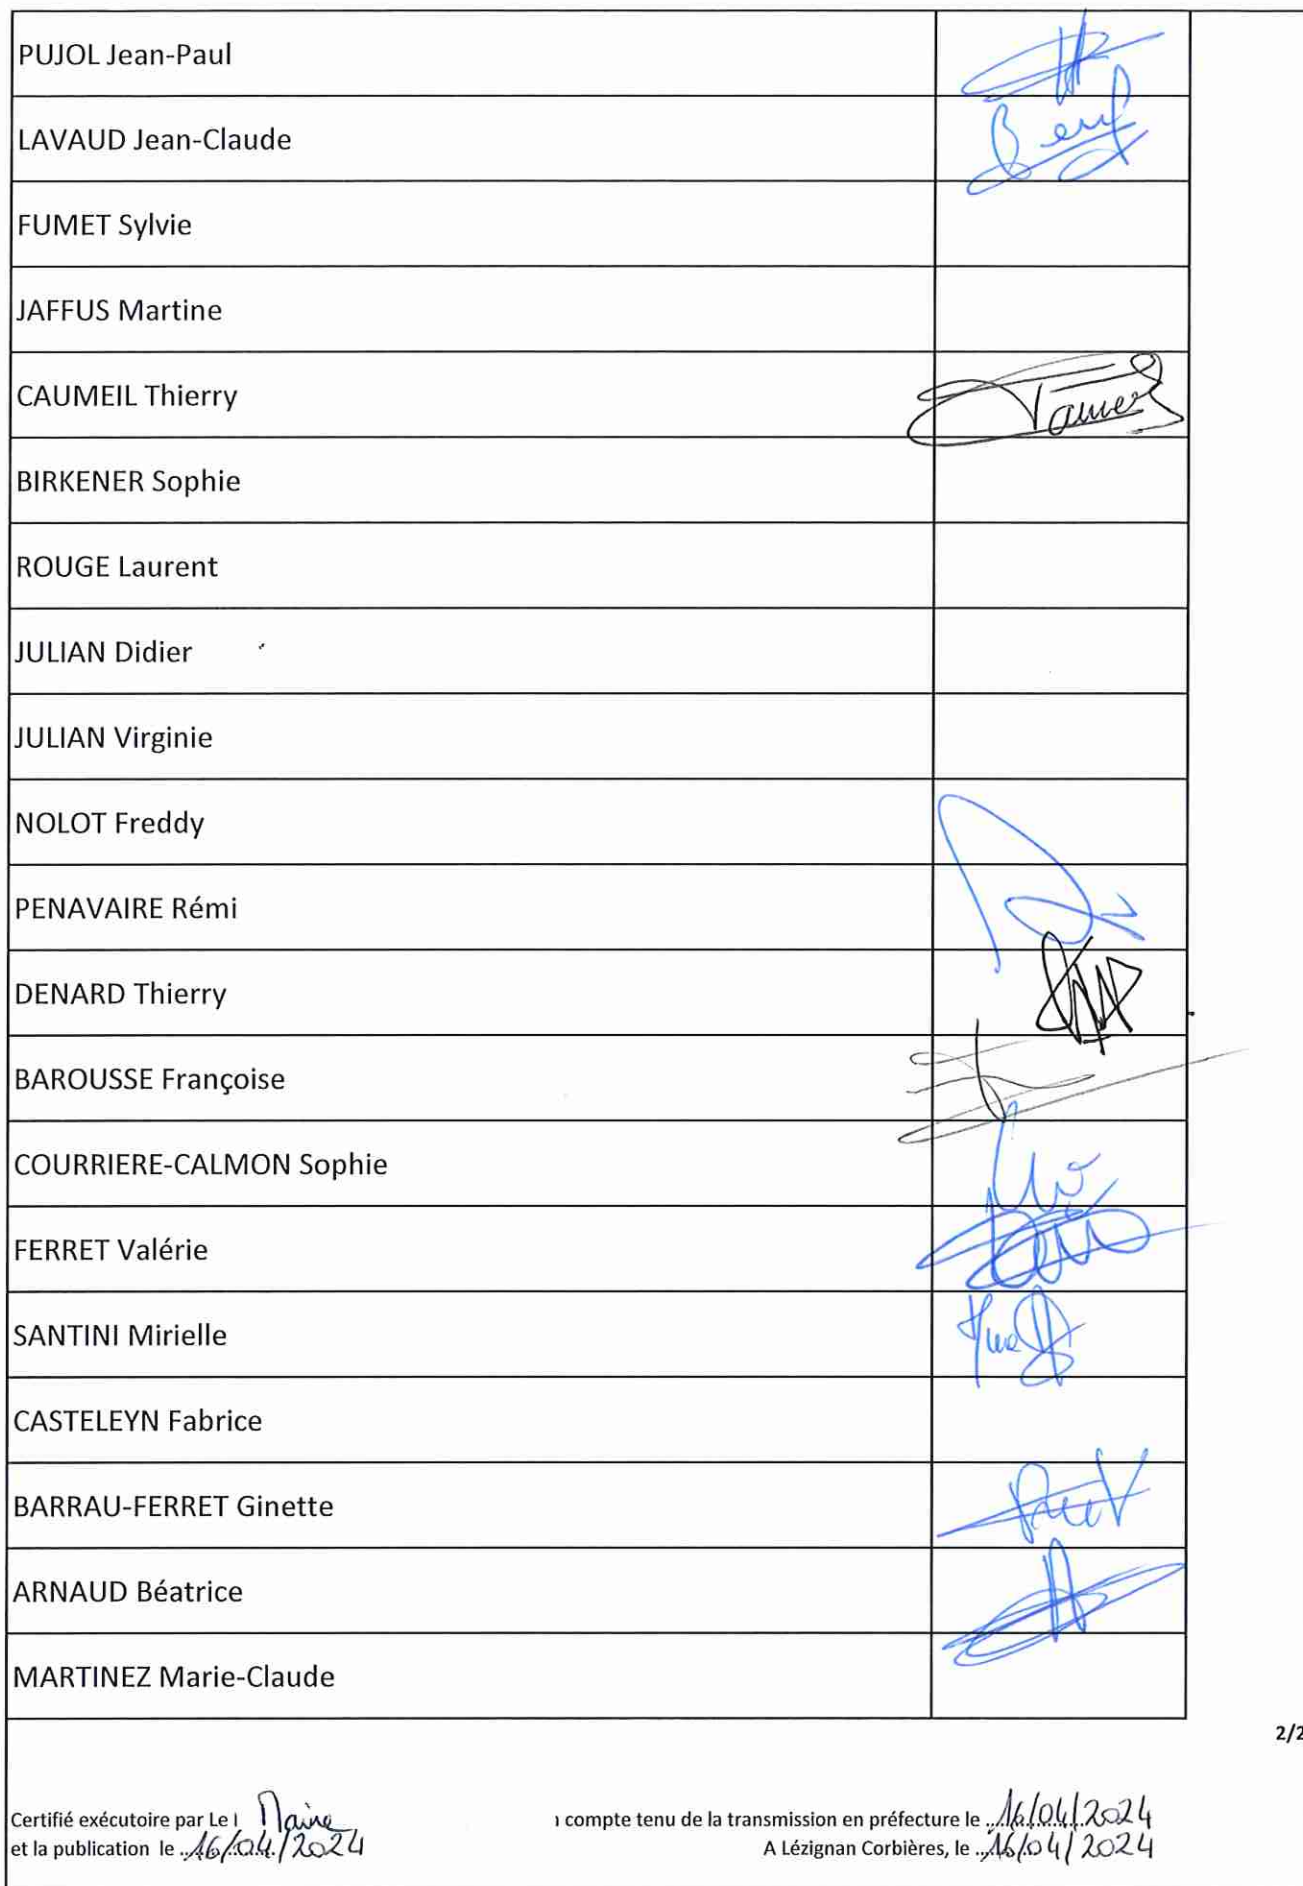 PUJOL Jean-Paul
LAVAUD Jean-Claude
FUMET Sylvie
JAFFUS Martine
CAUMEIL Thierry
BIRKENER Sophie
ROUGE Laurent
JULIAN Didier
JULIAN Virginie
NOLOT Freddy
PENAVAIRE Rémi
DENARD Thierry
BAROUSSE Françoise
COURRIERE-CALMON Sophie
FERRET Valérie
SANTINI Mirielle
CASTELEYN Fabrice
BARRAU-FERRET Ginette
ARNAUD Béatrice
MARTINEZ Marie-Claude
2/2
Certifié exécutoire par Le Maire compte tenu de la transmission en préfecture le 16/04/2024
et la publication le 16/04/2024 A Lézignan Corbières, le 16/04/2024